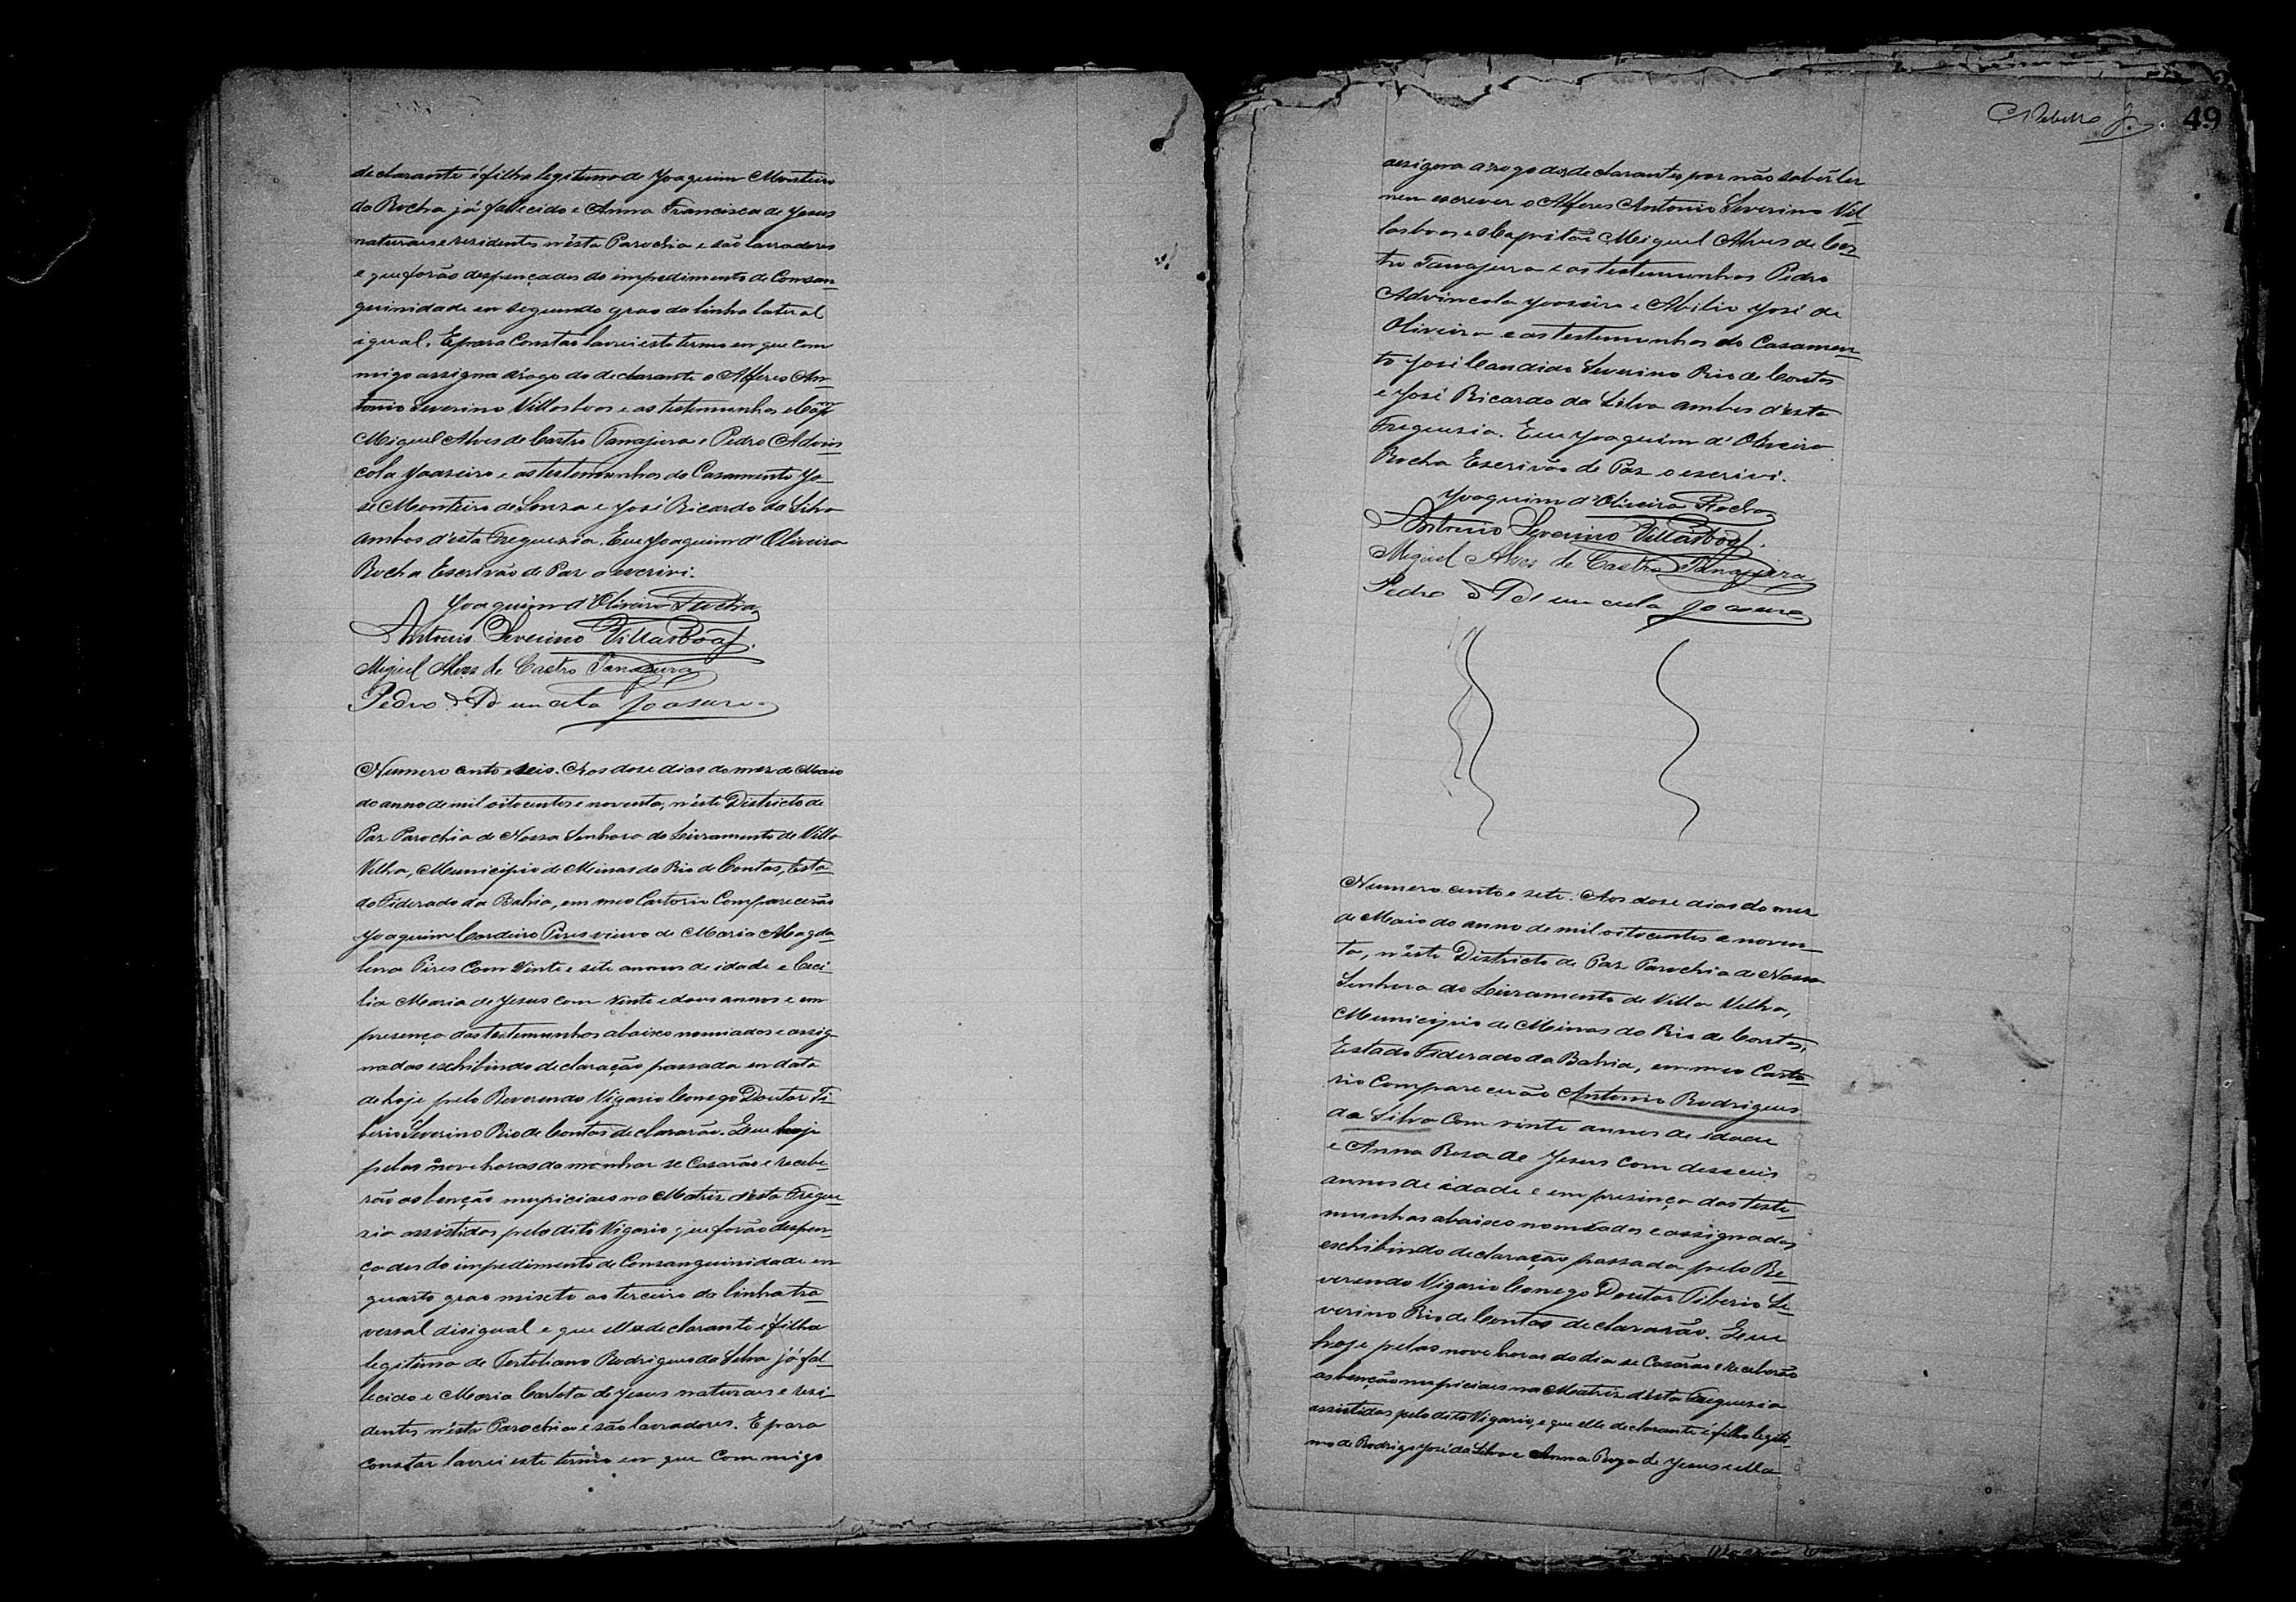 declarante é filha legitima de Joaquim Monteiro
da Rocha já fallecido e Anna Francisca de Jesus
naturaes e residentes n'esta Parochia e são lavradores
e que forão despençados do impedimento de Consan-
guinidade em segundo grao da linha lateral
igual. E para Constar lavrei este termo em que com
migo assigna a rogo do declarante o Alferes An-
tonio Severino Villasboas e as testemunhas o Capm
Miguel Alves de Castro Tanajura e Pedro Advin-
cola Joazeiro e as testemunhas do Casamento Jo-
sé Monteiro de Souza e José Ricardo da Silva
ambos d'esta Freguezia. Eu Joaquim d'Oliveira
Rocha Escrivão de Paz o escrivi.
Joaquim d'Oliveira Rocha
Antonio Severino Villasboas.
Miguel Alves de Castro Tanajura
Pedro Joasero
Numero cento e seis. Aos dose dias do mez de Maio
do anno de mil oitocentos e noventa, n'este Districto de
Paz Parochia de Nossa Senhora do Livramento de Villa
Velha, Municipio de Minas do Rio de Contas, Esta-
do Federado da Bahia, em meo Cartorio Comparecerão
Joaquim Cordeiro Pires viuvo de Maria Magda-
lena Pires Com vinte e sete annos de idade e Ceci-
lia Maria de Jesus com vinte e dous annos e em
presença das testemunhas abaixo nomiadas e assig-
nadas exhibindo declaração passada em data
de hoje pelo Reverendo Vigario Conego Doutor Ti-
berio Severino Rio de Contas declararão. Que hoje
pelas nove horas da manhar se Casarão e recebe-
rão as benção nupiciaes na Matriz d'esta Fregue
zia assistidos pelo dito Vigario que forão despen-
çados do impedimento de Consanguinidade em
quarto grao mixto ao terceiro da linha tra-
vessal disigual e que ella declarante é filha
legitima de Tertoliano Rodrigues da Silva já fal-
lecido e Maria Carlota de Jesus naturaes e resi-
dentes n'esta Parochia e são lavradores. E para
constar lavrei este termo em que Com migo
49
assigna a rogo dos declarantes por não saber ler
nem escrever o Alferes Antonio Severino Vil-
lasboas e o Capitão Miguel Alves de Cas-
tro Tanajura e as testemunhas Pedro
Advincola Joazeiro e Abilio José de
Oliveira e as testemunhas do Casamen-
to José Candido Severino Rio de Contas
e José Ricardo da Silva ambos d'esta
Freguezia. Eu Joaquim d'Oliveira
Rocha Escrivão de Paz o escrivi.
Joaquim d'Oliveira Rocha
Antonio Severino Villasboas.
Miguel Alves de Castro Tanajura
Pedro Joasero
Numero cento e sete. Aos dose dias do mez
de Maio do anno de mil oitocentos e noven-
ta, n'este Districto de Paz Parochia de Nossa
Senhora do Livramento de Villa Velha,
Municipio de Minas do Rio de Contas,
Estado Federado da Bahia, em meo Carto-
rio Comparecerão Antonio Rodrigues
da Silva Com vinte annos de idade
e Anna Rosa de Jesus com desseis
annos de idade e em presença das teste-
munhas abaixo nomiadas e assignadas
exhibindo declaração passada pelo Re-
verendo Vigario Conego Doutor Tiberio Se-
verino Rio de Contas declararão. Que
hoje pelas nove horas do dia se Casarão e receberão
as benção nupiciaes na Matriz d'esta Freguezia
assistidos pelo dito Vigario, e que elle declarante é filho legiti-
mo de Rodrigo José da Silva e Anna Roza de Jesus e ella